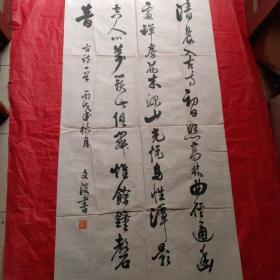 清晨入古寺初日照高林曲径通幽
處禅房花木深山光悦鳥性潭影
空人心萬籁此俱寂惟餘鐘磬
音
古詩一首丙戌年秋月
文波書